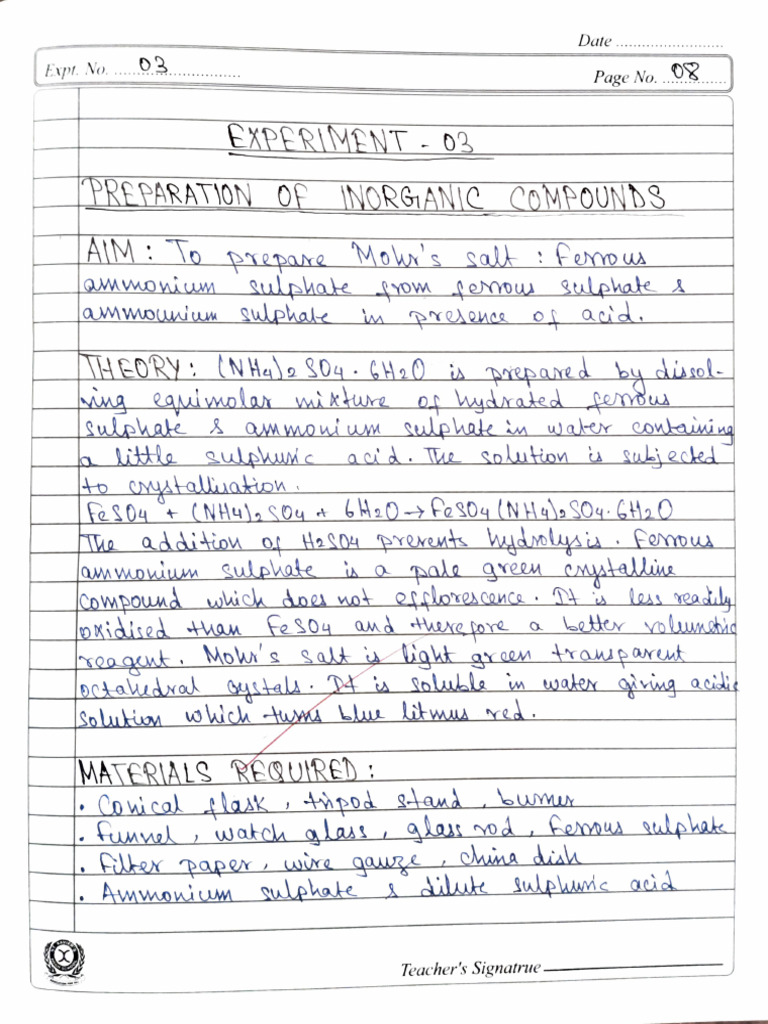 Date ..........................
Expt. No. ....03....................
Page No. ..08............
EXPERIMENT - 03
PREPARATION OF INORGANIC COMPOUNDS
AIM : To prepare Mohr's salt : Ferrous
ammonium sulphate from ferrous sulphate &
ammounium sulphate in presence of acid.
THEORY : (NH4)2 SO4 · 6H2O is prepared by dissol-
ving equimolar mixture of hydrated ferrous
sulphate & ammonium sulphate in water containing
a little sulphuric acid. The solution is subjected
to crystallisation.
FeSO4 + (NH4)2SO4 + 6H2O → FeSO4 (NH4)2SO4·6H2O
The addition of H2SO4 prevents hydrolysis. Ferrous
ammonium sulphate is a pale green crystalline
compound which does not efflorescence. It is less readily
oxidised than FeSO4 and therefore a better volumetric
reagent. Mohr's salt is light green transparent
octahedral crystals. It is soluble in water giving acidic
solution which turns blue litmus red.
MATERIALS REQUIRED :
• Conical flask , tripod stand , burner
• Funnel , watch glass , glass rod , Ferrous sulphate
• Filter paper , wire gauze , china dish
• Ammonium sulphate & dilute sulphuric acid
Teacher's Signatrue